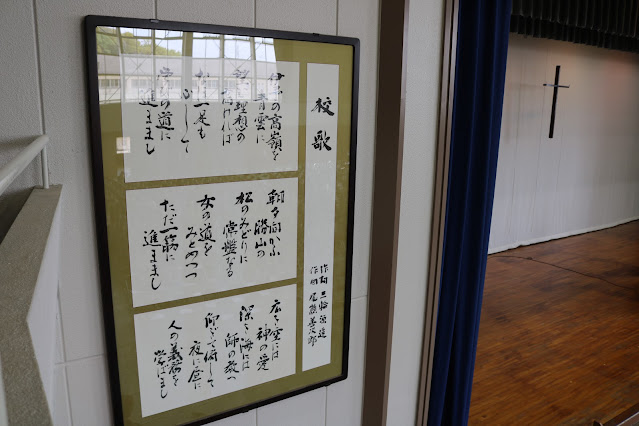 校歌
作詞 三輪源造
作曲
伊予の高嶺を
青雲に
理想の
たかければ
ただ一足も
して
学の道に
進ままし
朝夕向かふ
勝山の
松のみどりに
常盤なる
女の道を
みとめつつ
ただ一筋に
進ままし
広き空には
神の愛
深き海には
師の教へ
仰ぎて俯して
夜に昼に
人の義務を
学ばまし